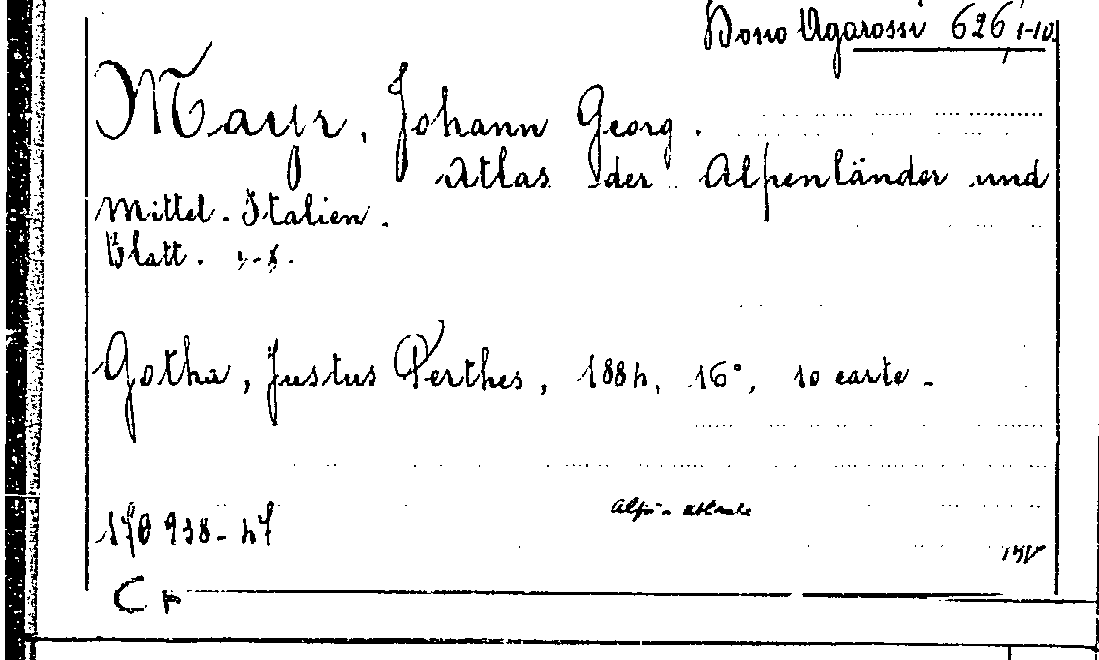 Dono Agarossi 626 1-10.
Mayr, Johann Georg.
Atlas der Alpenländer und
Mittel-Italien.
Blatt.
Gotha, Justus Perthes, 16°, 10 carte.
Alpi - atlante
C